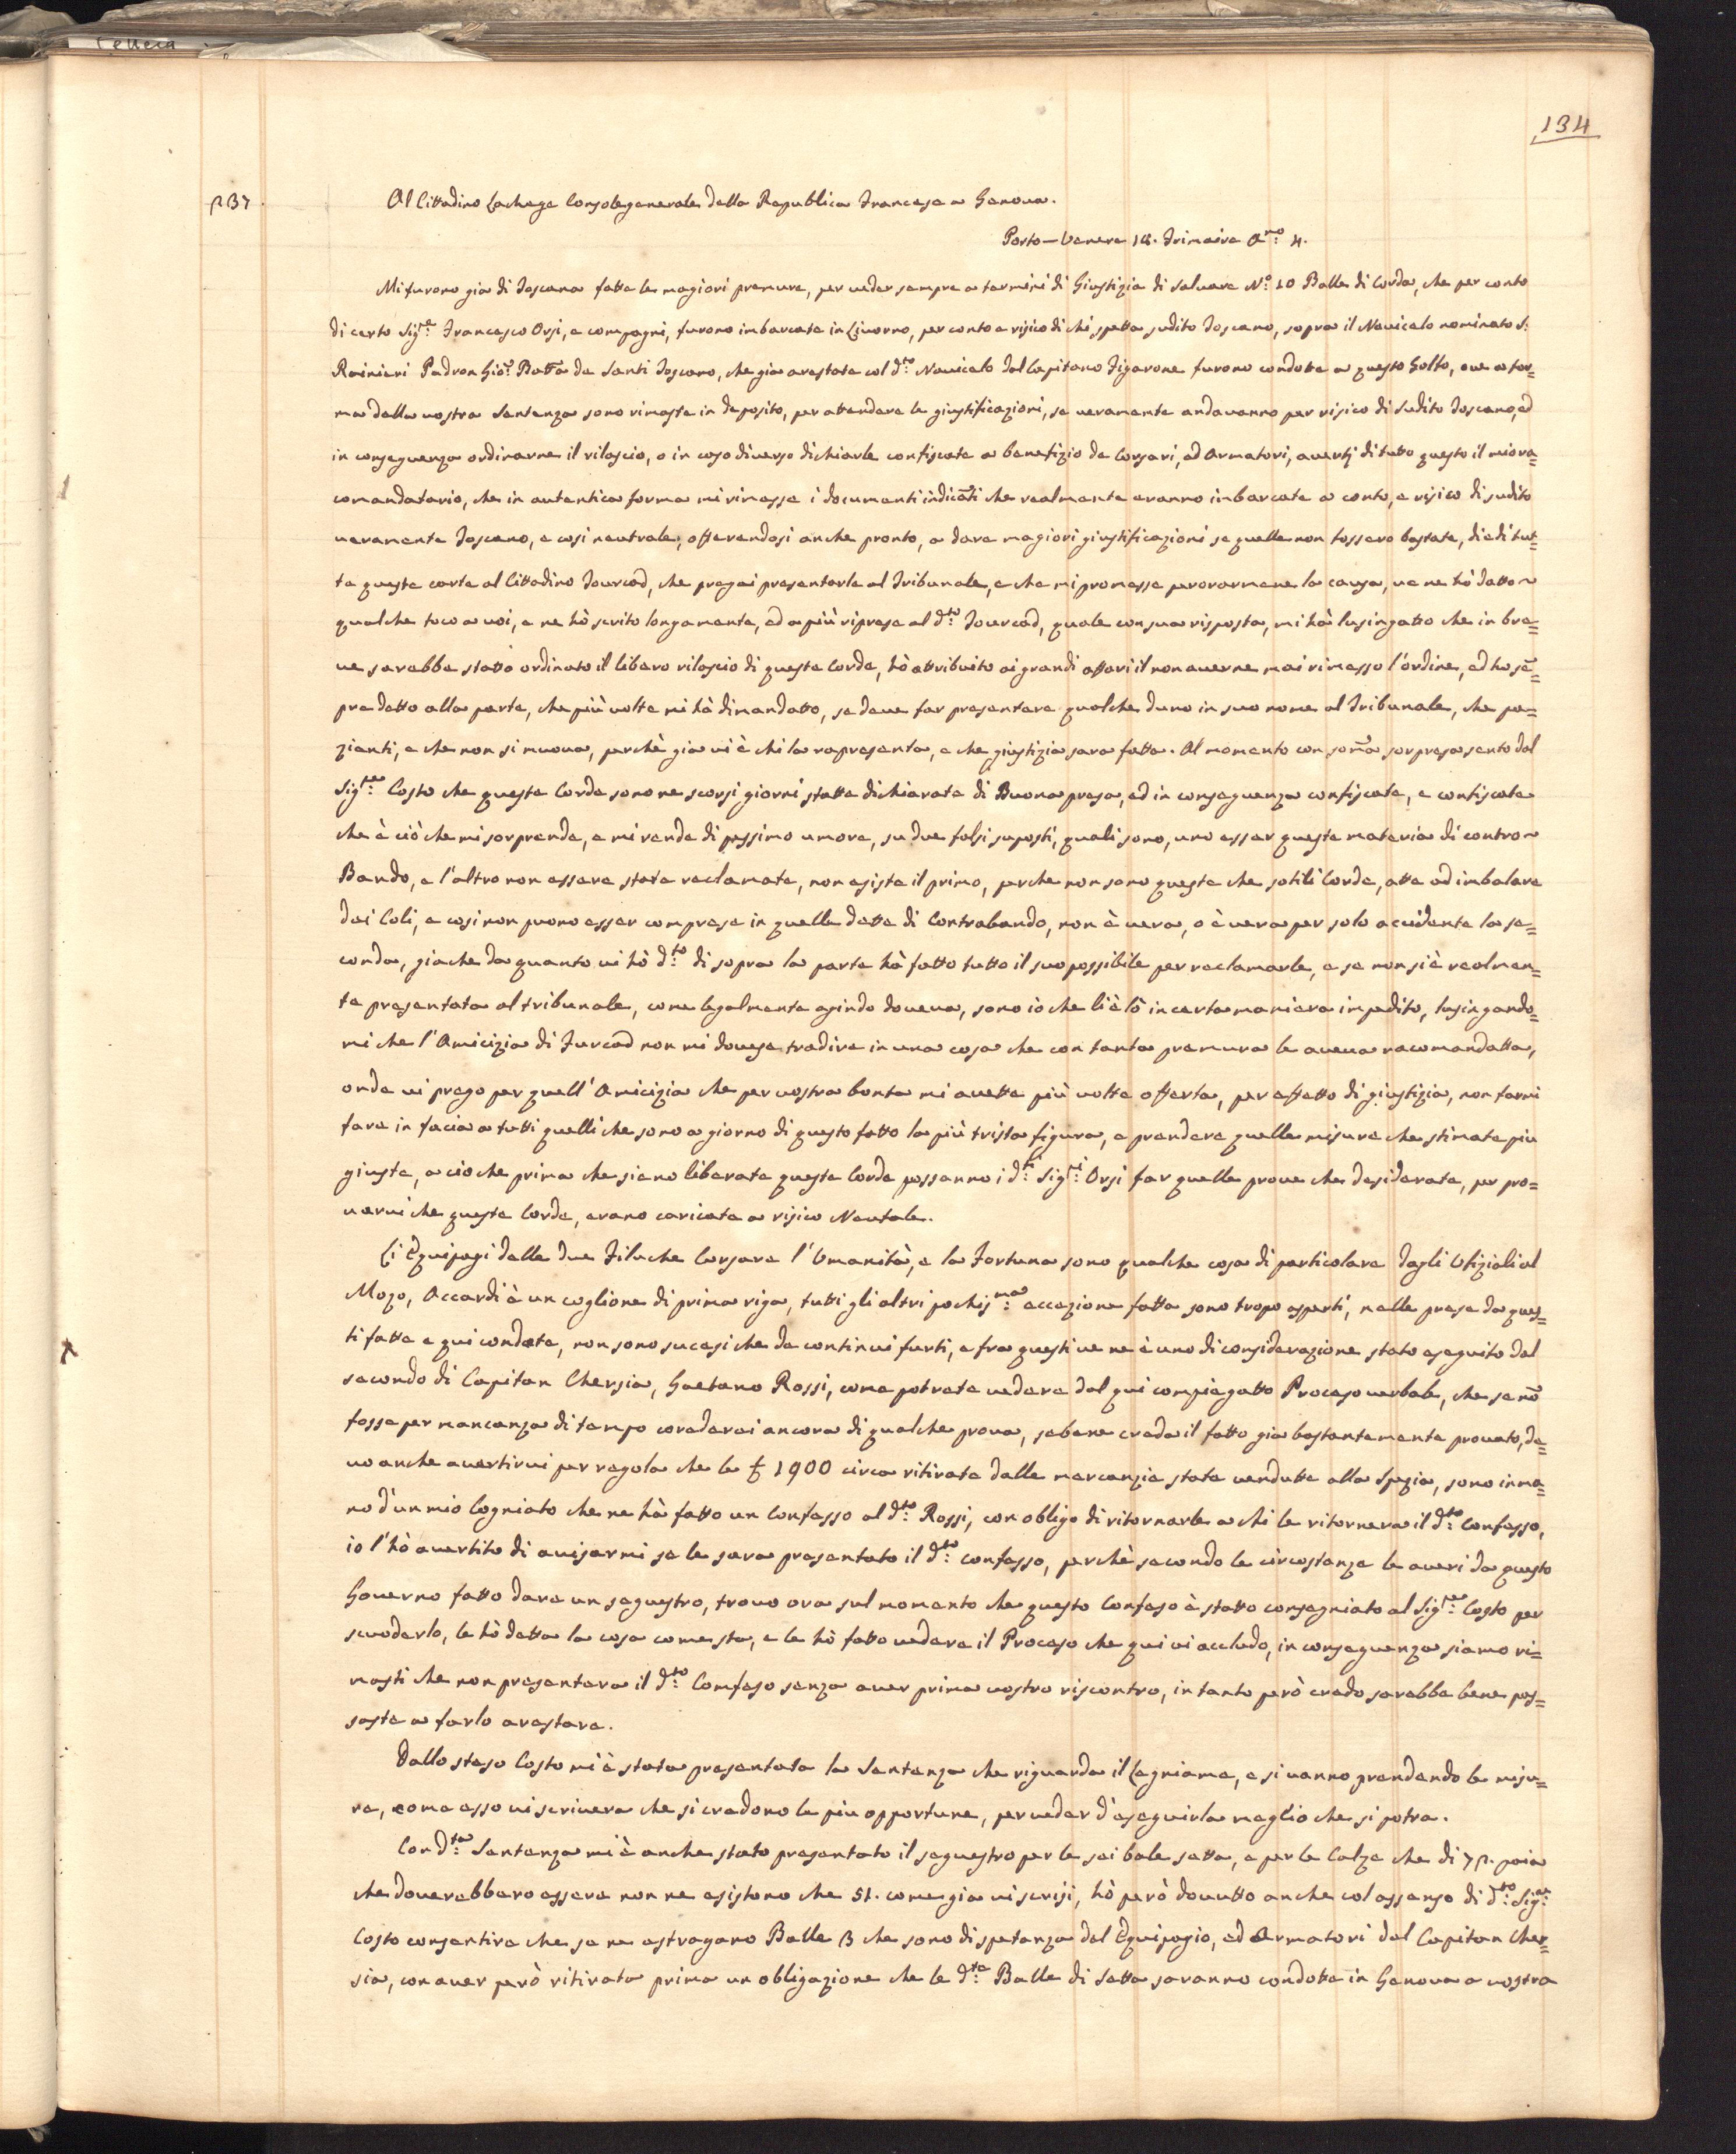 Lettera
134
Al Cittadino Lachege Consolegenerale della Republica Francese a Genova.
Porto-Venere 18. Frimaire Ano: 4.
Mi furono gia di Toscana fatte le magiori premure, per veder sempre a termini di Giustizia di salvare No: 10 Balle di Corda, che per conto
di certo Sige: Francesco Orsi, e compagni, furono imbarcate in Livorno, per conto e risico di chi spetta sudito Toscano, sopra il Navicelo nominato S:
Rainieri Padron Gio: Batta de Santi Toscano, che gia arestate col dto: Navicelo dal Capitano Figarone furono condotte a questo Golfo, ove a for=
ma della vostra Sentenza sono rimaste in deposito, per attendere le giustificazioni, se veramente andavanno per risico di Sudito Toscano, ed
in conseguenza ordinarne il rilascio, o in caso diverso dichiarle confiscate a benefizio de Corsari, ed Armatori, avertj di tutto questo il mio ra=
comandatario, che in autentica forma mi rimesse i documenti indicati che realmente eranno imbarcate a conto, e risico di sudito
veramente Toscano, e cosi neutrale, offerendosi anche pronto, a dare magiori giustificazioni se quelle non fossero bastate, diedi tut=
te queste carte al Cittadino Tourcad, che pregai presentarle al Tribunale, e che mi promesse perorarmene la causa, ve ne hò datto
qualche toco a voi, e ne hò scrito longamente, ed a più riprese al dto: Tourcad, quale con sua risposta, mi hà lusingatto che in bre=
ve sarebbe statto ordinato il libero rilascio di queste Corde, hò attribuito ai grandi affari il non averne mai rimesso l'ordine, ed ho sē=
pre detto alla parte, che più volte mi hà dimandatto, se deve far presentare qualche duno in suo nome al Tribunale, che pa=
zienti, e che non si muova, perchè gia vi è chi la rapresenta, e che giustizia sara fatta. Al momento con soma sorpresa sento dal
Sigre: Costo che queste Corde sono ne scorsi giorni statte dichiarate di Buona presa, ed in conseguenza confiscate, e confiscate
che è ciò che mi sorprende, e mi rende di pessimo umore, su due falsi suposti, quali sono, uno esser queste materia di contro
Bando, e l'altro non essere state reclamate, non esiste il primo, perche non sono queste che sotili Corde, atte ad imbalare
dei Coli, e cosi non puono esser comprese in quelle dette di Contrabando, non è vera, o è vera per solo accidente la se=
conda, giache da quanto vi hò dto: di sopra la parte hà fatto tutto il suo possibile per reclamarle, e se non si è realmen=
te presentata al tribunale, come legalmente agindo doveva, sono iò che li è lò in certa maniera impedito, lusingando=
mi che l'Amicizia di Turcad non mi dovese tradire in una cosa che con tanta premura le aveva racomandatta,
onde vi prego per quell'Amicizia che per vostra bonta mi avette più volte offerta, per effetto di giustizia, non farmi
fare in facia a tutti quelli che sono a giorno di questo fatto la più trista figura, e prendere quelle misure che stimate più
giuste, a ciò che prima che siano liberate queste Corde possanno i dti: Sigri: Orsi far quelle prove che desiderate, per pro=
varvi che queste Corde, erano caricate a risico Neutale.
Li Equipagi delle due Filuche Corsare l'Umanità, e la Fortuna sono qualche cosa di particolare dagli Ufiziali al
Mozo, Accardi è un coglione di prima riga, tutti gli altri pochisma: eccezione fatta sono tropo esperti, nelle prese da ques=
ti fatte e qui condote, non sono sucesi che de continui furti, e fra questi ve ne è uno di considerazione stato eseguito dal
secondo di Capitan Chersia, Gaetano Rossi, come potrete vedere dal qui compiegatto Proceso verbale, che se nō
fosse per mancanza di tempo coraderei ancora di qualche prova, sebene creda il fatto gia bastantemente provato, de=
vo anche avertirvi per regola che le £ 1900 circa ritirate dalle mercanzie state vendutte alla Spezia, sono in ma=
no d'un mio Cogniato che ne hà fatto un Confesso al dto: Rossi, con obligo di ritornarle a chi le ritornera il dto: Confesso,
io l'hò avertito di avisarmi se le sara presentato il dto: confesso, perchè secondo le circostanze le averi da questo
Governo fatto dare un seguestro, trovo ora sul momento che questo Confeso è statto consegniato al Sigre: Costo per
scuoderlo, le hò detta la cosa come sta, e le hò fatto vedere il Proceso che qui vi accludo, in conseguenza siamo ri=
masti che non presentera il dto: Comfeso senza aver prima vostro riscontro, in tanto però credo sarebbe bene pos=
saste a farlo arestare.
Dallo steso Costo mi è stata presentata la Sentenza che riguarda il Legniame, e si vanno prendendo le misu=
re, come esso vi scrivera che si credono le piu opportune, per veder d'eseguirla meglio che si potra.
Con dta: Sentenza mi è anche stato presentato il seguestro per le sei bale setta, e per le Calze che di 72. paia
che doverebbero essere non ne esistono che 51. come gia vi scrisi, hò però dovutto anche col assenso di dto: Sige:
Costo consentire che se ne estragano Balle 3 che sono di spetanza del Equipagio, ed Armatori del Capitan Cher=
sia, con aver però ritirata prima un obligazione che le dte: Balle di Setta saranno condotte in Genova a vostra